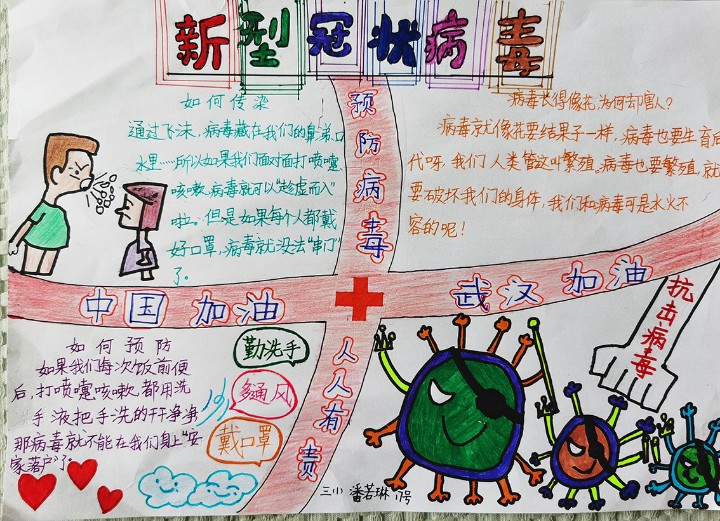 新型冠状病毒
如何传染
通过飞沫,病毒藏在我们的鼻涕、口
水里……所以如果我们面对面打喷嚏、
咳嗽,病毒就可以“趁虚而入”
啦。但是如果每个人都戴
好口罩,病毒就没法“串门”
了。
病毒长得像花,为何却害人?
病毒就像花要结果子一样,病毒也要生育后
代呀,我们人类管这叫繁殖。病毒也要繁殖,就
要破坏我们的身体,我们和病毒可是水火不
容的呢!
预防病毒
人人有责
中国加油
武汉加油
抗击病毒
如何预防
如果我们每次饭前便
后,打喷嚏、咳嗽,都用洗
手液把手洗的干干净净,
那病毒就不能在我们身上“安
家落户”了。
勤洗手
多通风
戴口罩
三小 潘若琳 17号